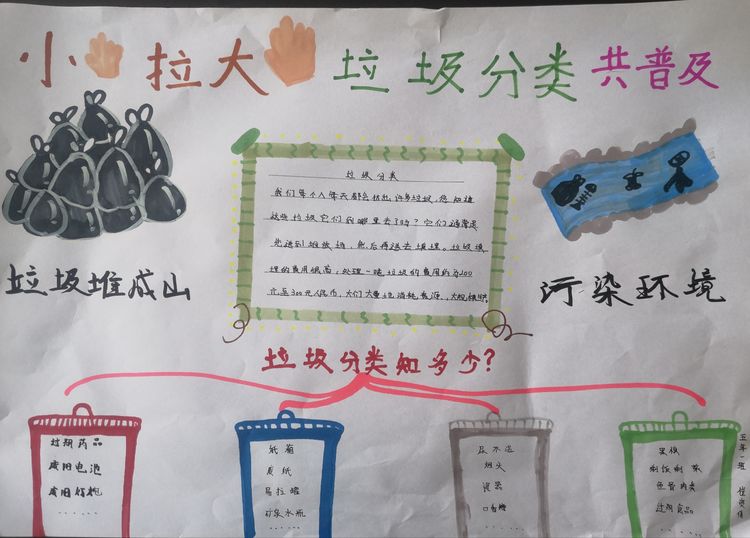 小 拉大 垃圾分类共普及
垃圾分类
我们每个人每天都会扔出许多垃圾,您知道
这些垃圾它们到哪里去了吗?它们通常是
先送到堆放场,然后再送去填埋。垃圾填
埋的费用很高,处理一吨垃圾的费用约为200
元至300元人民币,人们大量地消耗资源,大规模
垃圾堆成山
污染环境
垃圾分类知多少?
过期药品
废旧电池
废旧灯泡
......
纸箱
废纸
易拉罐
矿泉水瓶
......
尿不湿
烟头
瓷器
口香糖
......
果核
剩饭剩菜
鱼骨肉类
过期食品
......
五年一班